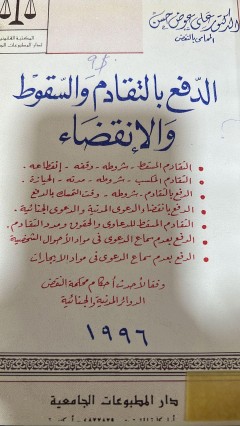 المكتبة القانونية
لدار المطبوعات
الدكتور علي عوض حسن
المحامى بالنقض
الدفع بالتقادم والسقوط
والإنقضاء
• التقادم المسقط - شروطه - وقفه - إنقطاعه.
• التقادم المكسب - شروطه - مدته - الحيازة.
• الدفع بالتقادم - شروطه - وقت التمسك بالدفع
• الدفع بإنقضاء الدعوى المدنية والدعوى الجنائية.
• التقادم المسقط للدعاوى والحقوق ومدد التقادم.
• الدفع بعدم سماع الدعوى فى مواد الأحوال الشخصية
• الدفع بعدم سماع الدعوى فى مواد الإيجارات
وفقا لأحدث أحكام محكمة النقض
الدوائر المدنية والجنائية
١٩٩٦
دار المطبوعات الجامعية